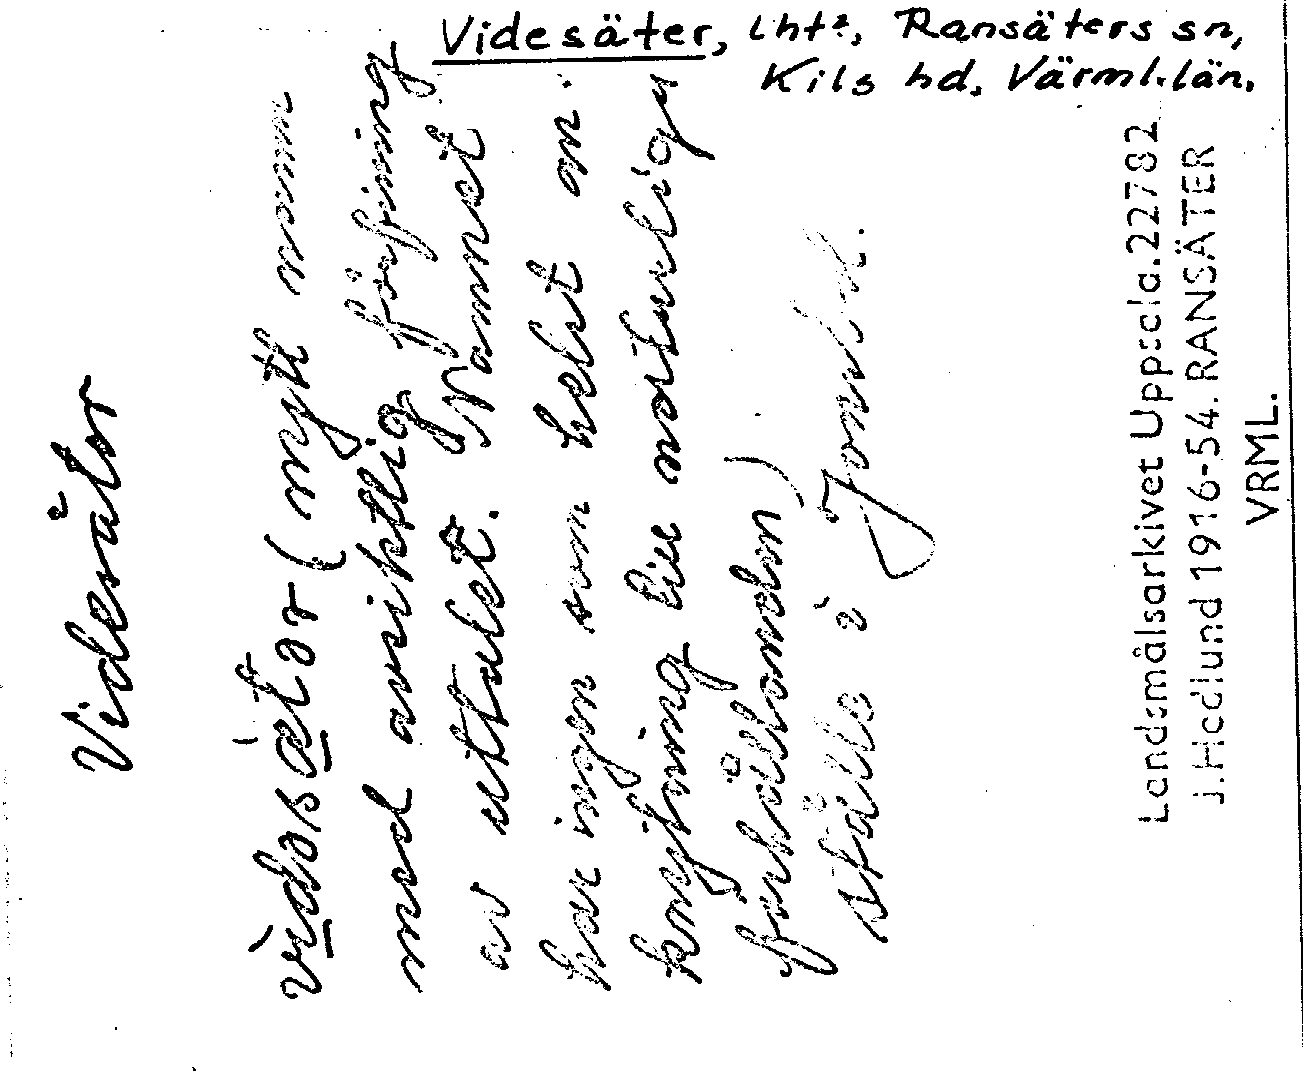 Videsäter, lht², Ransäters sn,
Kils hd, Värml.län.
Videsäter
vìdəsæ̀tər (nytt namn
med avsiktlig förfining
av uttalet. Namnet
har ingen som helst an-
knytning till naturliga
förhållanden)
ställe i
Landsmålsarkivet Uppsala.22782
J.Hedlund 1916-54. RANSÄTER
VRML.